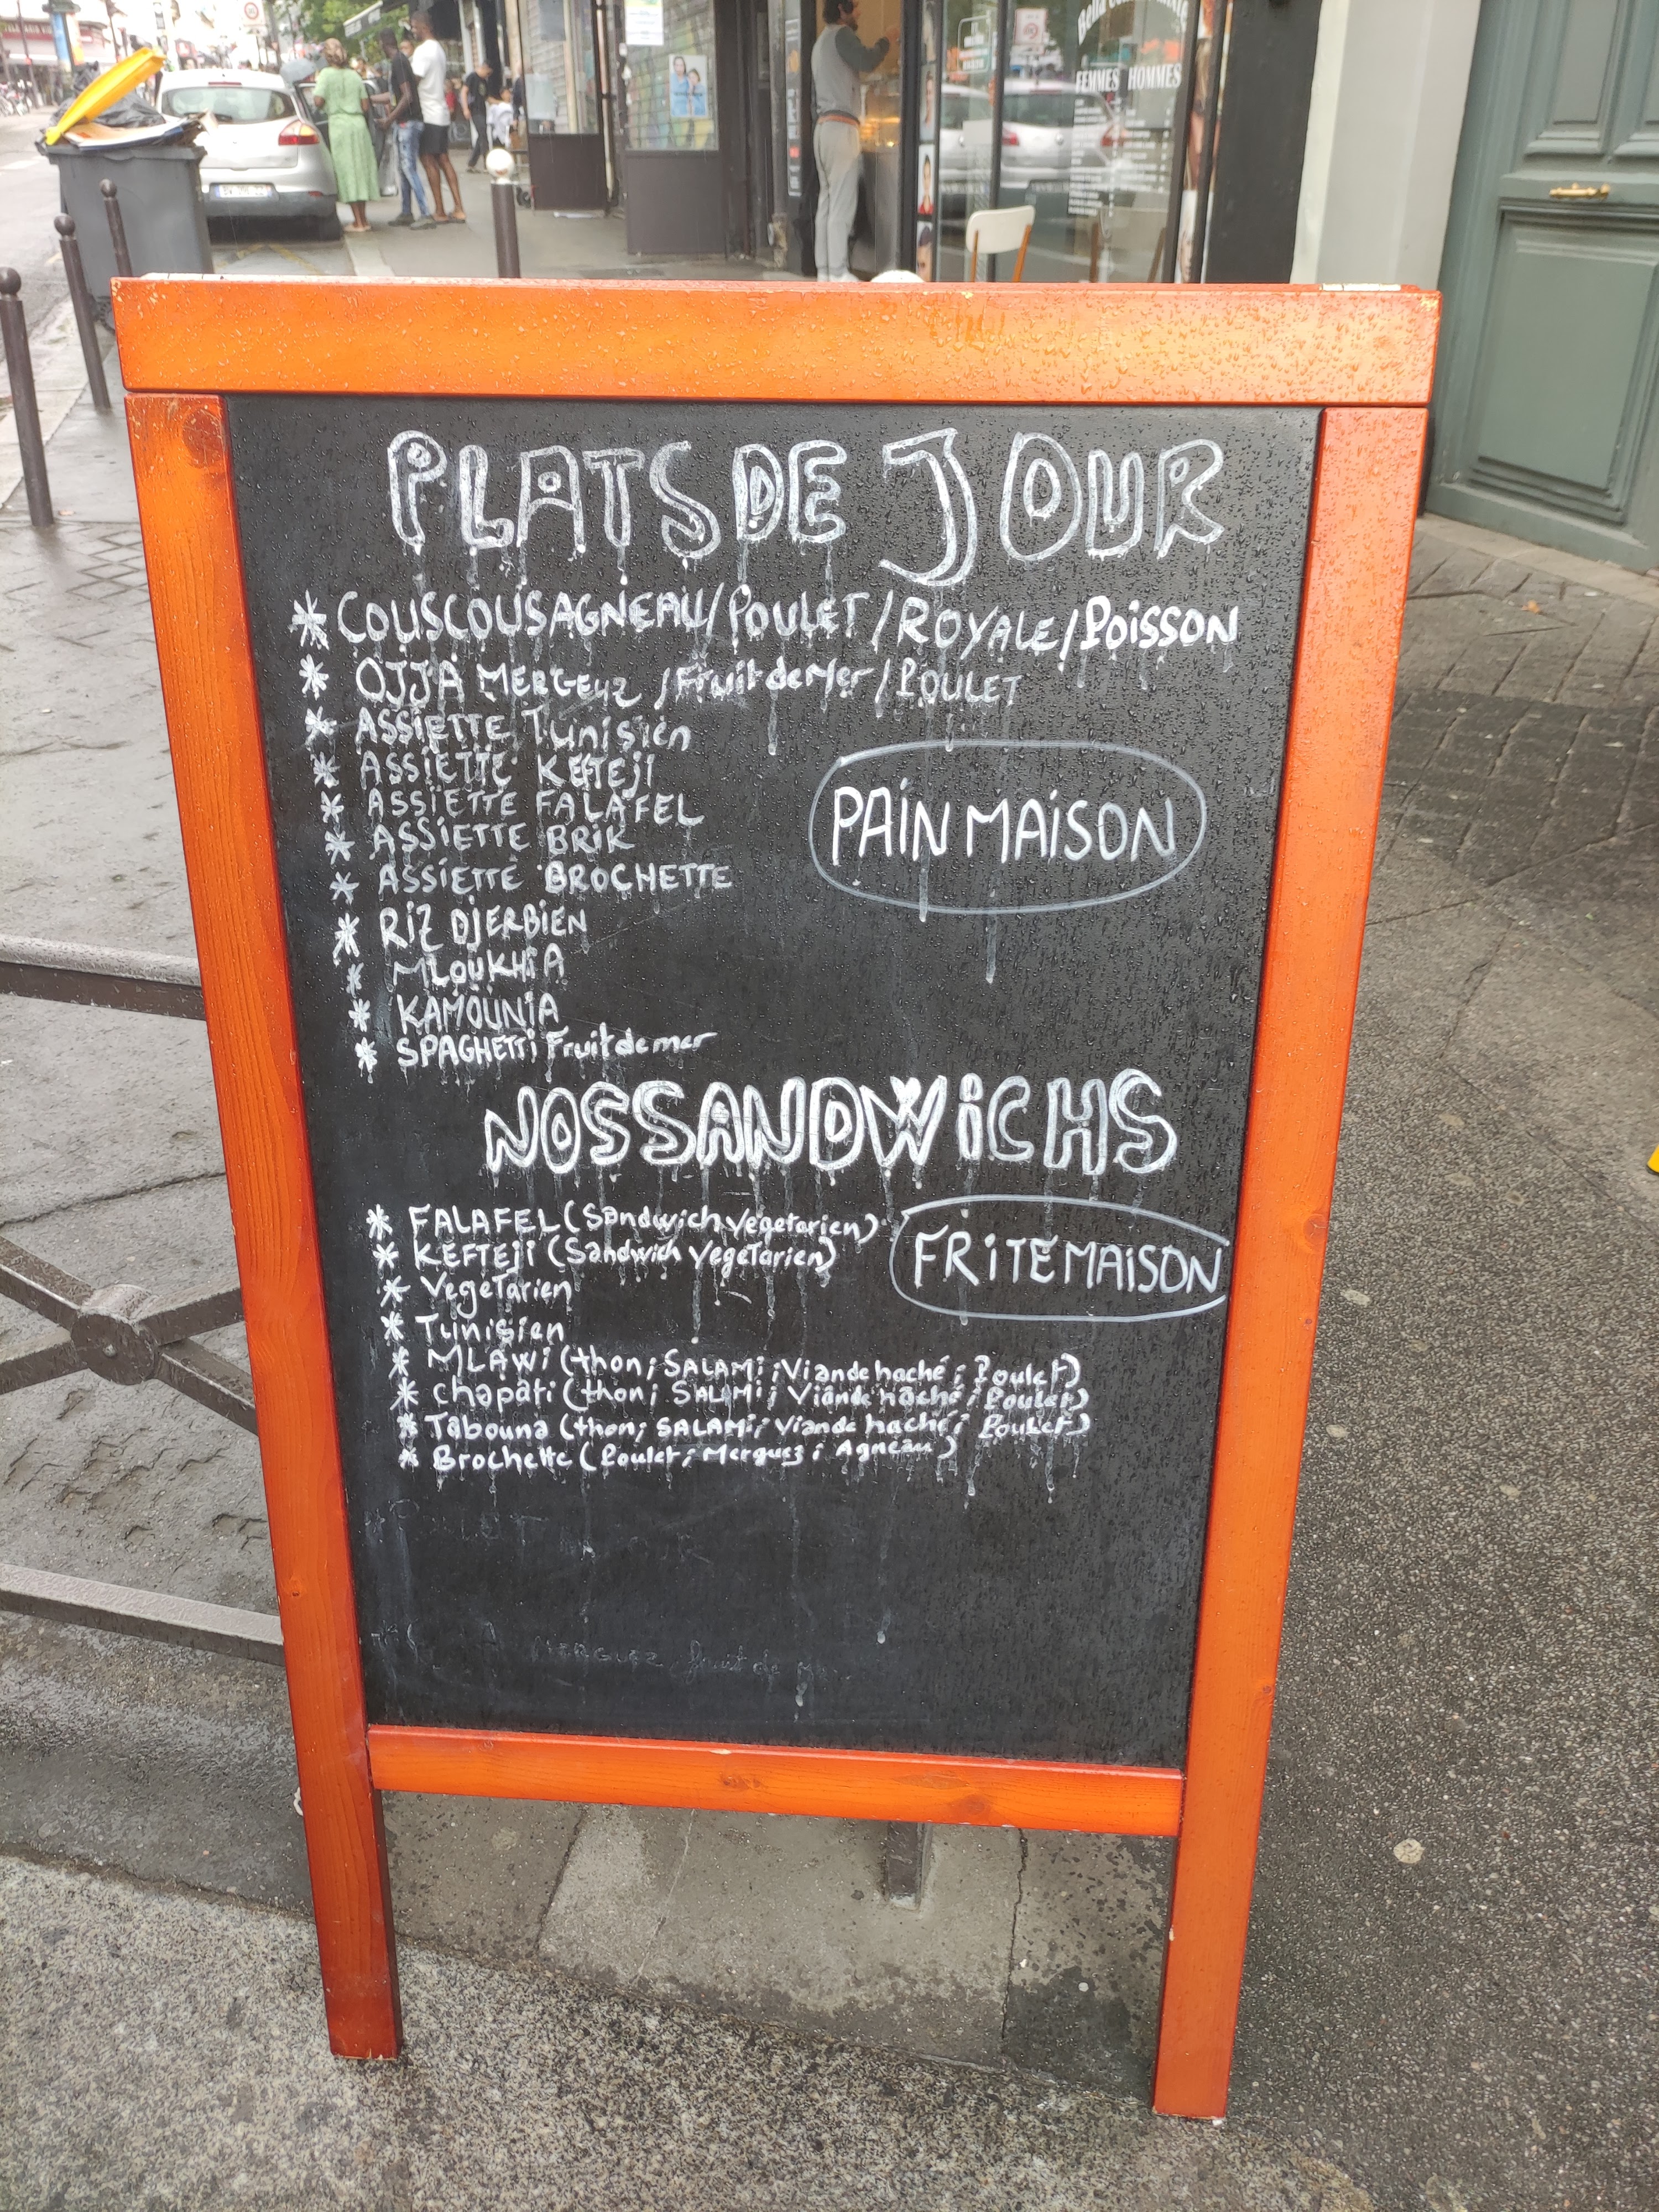 FEMMES HOMMES
PLATS DE JOUR
* COUSCOUS AGNEAU/POULET/ROYALE/POISSON
* OJJA MERGEUZ/Fruit de Mer/POULET
* ASSIETTE Tunisien
* ASSIETTE KEFTEJI
* ASSIETTE FALAFEL
* ASSIETTE BRIK
* ASSIETTE BROCHETTE
PAIN MAISON
* RIZ DJERBIEN
* MLOUKHIA
* KAMOUNIA
* SPAGHETTI Fruit de mer
NOS SANDWICHS
* FALAFEL (Sandwich Vegetarien)
* KEFTEJI (Sandwich Vegetarien)
* Vegetarien
FRITE MAISON
* Tunisien
* MLAWI (thon; SALAMI; Viande haché; Poulet)
* chapati (thon; SALAMI; Viande haché; Poulet)
* Tabouna (thon; SALAMI; Viande haché; Poulet)
* Brochette (Poulet; Merguez; Agneau)
MERGUEZ fruit de